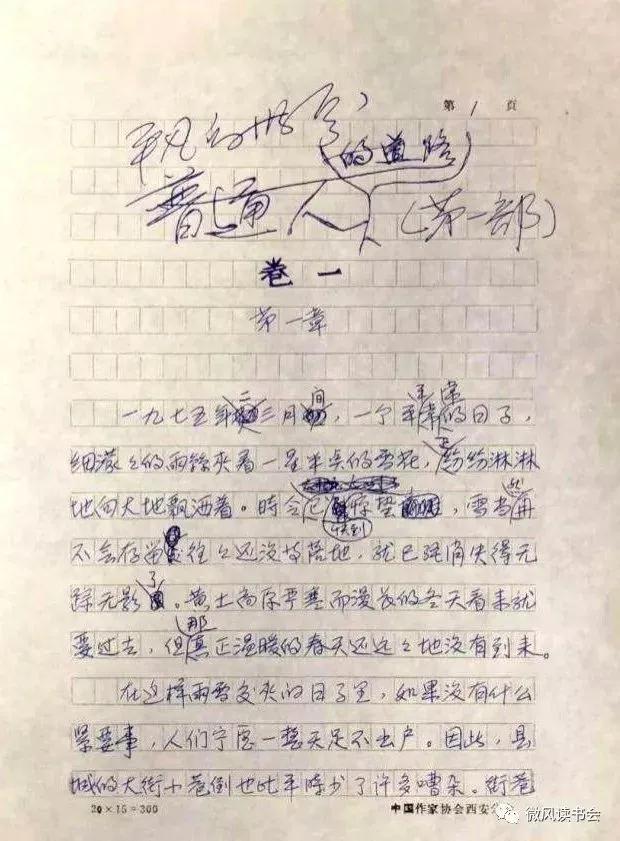 第 1 页
平凡的世界
(的道路)
普通人(第一部)
卷一
第一章
一九七五年二三月间，一个平平常常的日子，
细濛々的雨丝夹着一星半点的雪花，正纷纷淋淋
地向大地飘洒着。時令已快到惊蛰，雪当然再
不会存留，往々还没等落地，就已经消失得无
踪无影了。黄土高原严寒而漫长的冬天看来就
要过去，但那真正温暖的春天还远々地没有到来。
在这样雨雪交夹的日子里，如果没有什么
紧要事，人们宁愿一整天足不出户。因此，县
城的大街小巷倒也比平時少了许多嘈杂。街巷
20×15=300
中国作家协会西安
微风读书会